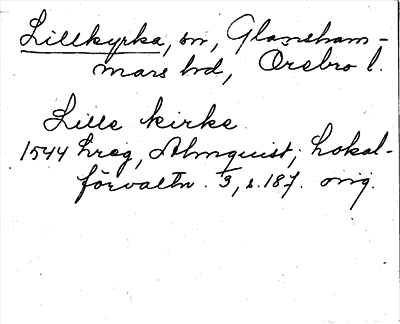 Lillkyrka, sn, Glansham-
mars hd, Örebro l.
Lille kirke
1544 hreg, Almquist, Lokal-
förvaltn. 3, s. 187. orig.